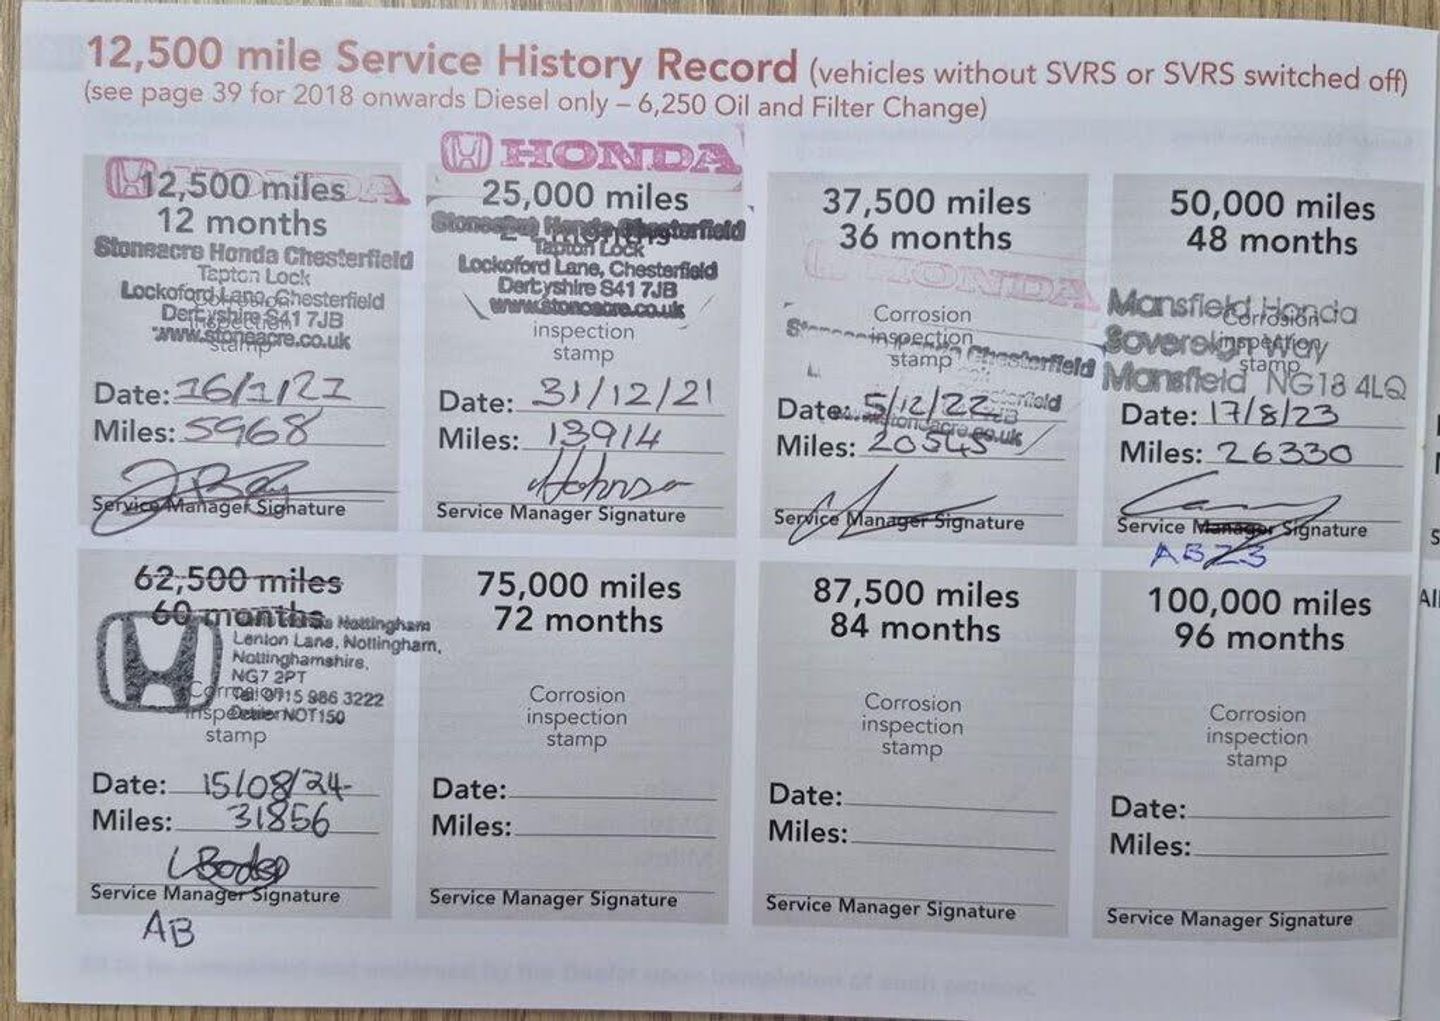 12,500 mile Service History Record (vehicles without SVRS or SVRS switched off)
(see page 39 for 2018 onwards Diesel only – 6,250 Oil and Filter Change)
HONDA
12,500 miles
12 months
Stoneacre Honda Chesterfield
Tapton Lock
Lockoford Lane, Chesterfield
Derbyshire S41 7JB
inspection
www.stoneacre.co.uk
stamp
Date: 16/1/21
Miles: 5968
Service Manager Signature
HONDA
25,000 miles
Stoneacre Honda Chesterfield
Tapton Lock
Lockoford Lane, Chesterfield
Derbyshire S41 7JB
www.stoneacre.co.uk
inspection
stamp
Date: 31/12/21
Miles: 13914
Service Manager Signature
37,500 miles
36 months
HONDA
Corrosion
inspection
stamp
Chesterfield
Date: 5/12/22
Miles: 20545
Service Manager Signature
50,000 miles
48 months
Mansfield Honda
Corrosion
Sovereign Way
inspection
stamp
Mansfield NG18 4LQ
Date: 17/8/23
Miles: 26330
Service Manager Signature
AB23
62,500 miles
60 months
Nottingham
Lenton Lane, Nottingham,
Nottinghamshire,
NG7 2PT
Corrosion
Tel 0115 986 3222
inspection
Dealer NOT150
stamp
Date: 15/08/24
Miles: 31856
Service Manager Signature
AB
75,000 miles
72 months
Corrosion
inspection
stamp
Date:
Miles:
Service Manager Signature
87,500 miles
84 months
Corrosion
inspection
stamp
Date:
Miles:
Service Manager Signature
100,000 miles
96 months
Corrosion
inspection
stamp
Date:
Miles:
Service Manager Signature